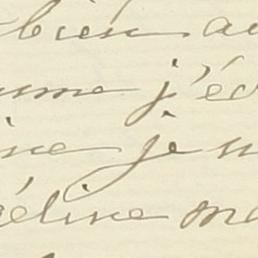 bien au
me j'éc
ine je n
éline ma